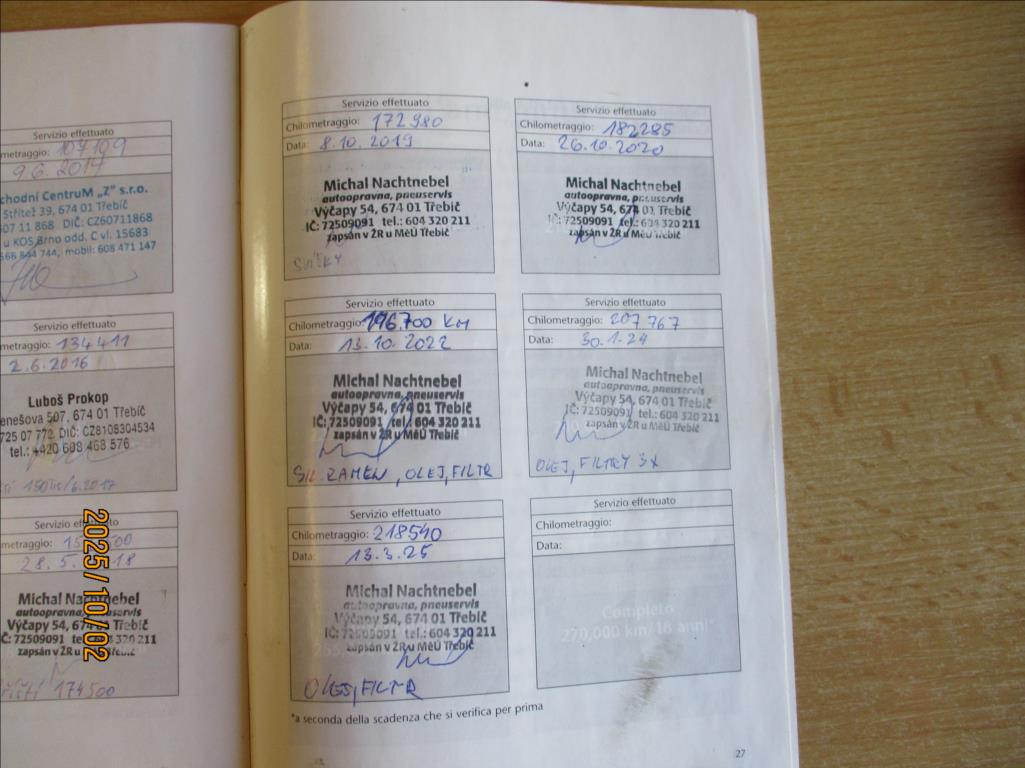 Servizio effettuato
metraggio: 107109
9.6. 2014
chodní CentruM „Z" s.r.o.
Střítež 39, 674 01 Třebíč
607 11 868 DIČ: CZ60711868
u KOS Brno odd. C vl. 15683
568 844 744, mobil: 608 471 147
Servizio effettuato
metraggio: 134 411
2.6.2016
Luboš Prokop
enešova 507, 674 01 Třebíč
725 07 772 DIČ: CZ8108304534
tel.: +420 608 468 576
Servizio effettuato
metraggio:
28.5.
Michal Nachtnebel
autoopravna, pneuservis
Výčapy 54, 674 01 Třebíč
IČ: 72509091 tel.: 604 320 211
zapsán v ŽR u MěÚ Třebíč
174500
2025/10/02
Servizio effettuato
Chilometraggio: 172 980
Data: 8.10. 2019
Michal Nachtnebel
autoopravna, pneuservis
Výčapy 54, 674 01 Třebíč
IČ: 72509091 tel.: 604 320 211
zapsán v ŽR u MěÚ Třebíč
SVÍČKY
Servizio effettuato
Chilometraggio: 182285
Data: 26.10.2020
Michal Nachtnebel
autoopravna, pneuservis
Výčapy 54, 674 01 Třebíč
IČ: 72509091 tel.: 604 320 211
zapsán v ŽR u MěÚ Třebíč
Servizio effettuato
Chilometraggio: 196.700 KM
Data: 13.10.2022
Michal Nachtnebel
autoopravna, pneuservis
Výčapy 54, 674 01 Třebíč
IČ: 72509091 tel.: 604 320 211
zapsán v ŽR u MěÚ Třebíč
SIL. RAMEN, OLEJ, FILTR
Servizio effettuato
Chilometraggio: 207 767
Data: 30.1.24
Michal Nachtnebel
autoopravna, pneuservis
Výčapy 54, 674 01 Třebíč
IČ: 72509091 tel.: 604 320 211
zapsán v ŽR u MěÚ Třebíč
OLEJ, FILTRY 3X
Servizio effettuato
Chilometraggio: 218540
Data: 13.3.25
Michal Nachtnebel
autoopravna, pneuservis
Výčapy 54, 674 01 Třebíč
IČ: 72509091 tel.: 604 320 211
zapsán v ŽR u MěÚ Třebíč
OLEJ, FILTR
Servizio effettuato
Chilometraggio:
Data:
Completo
270,000 km/18 anni*
*a seconda della scadenza che si verifica per prima
27